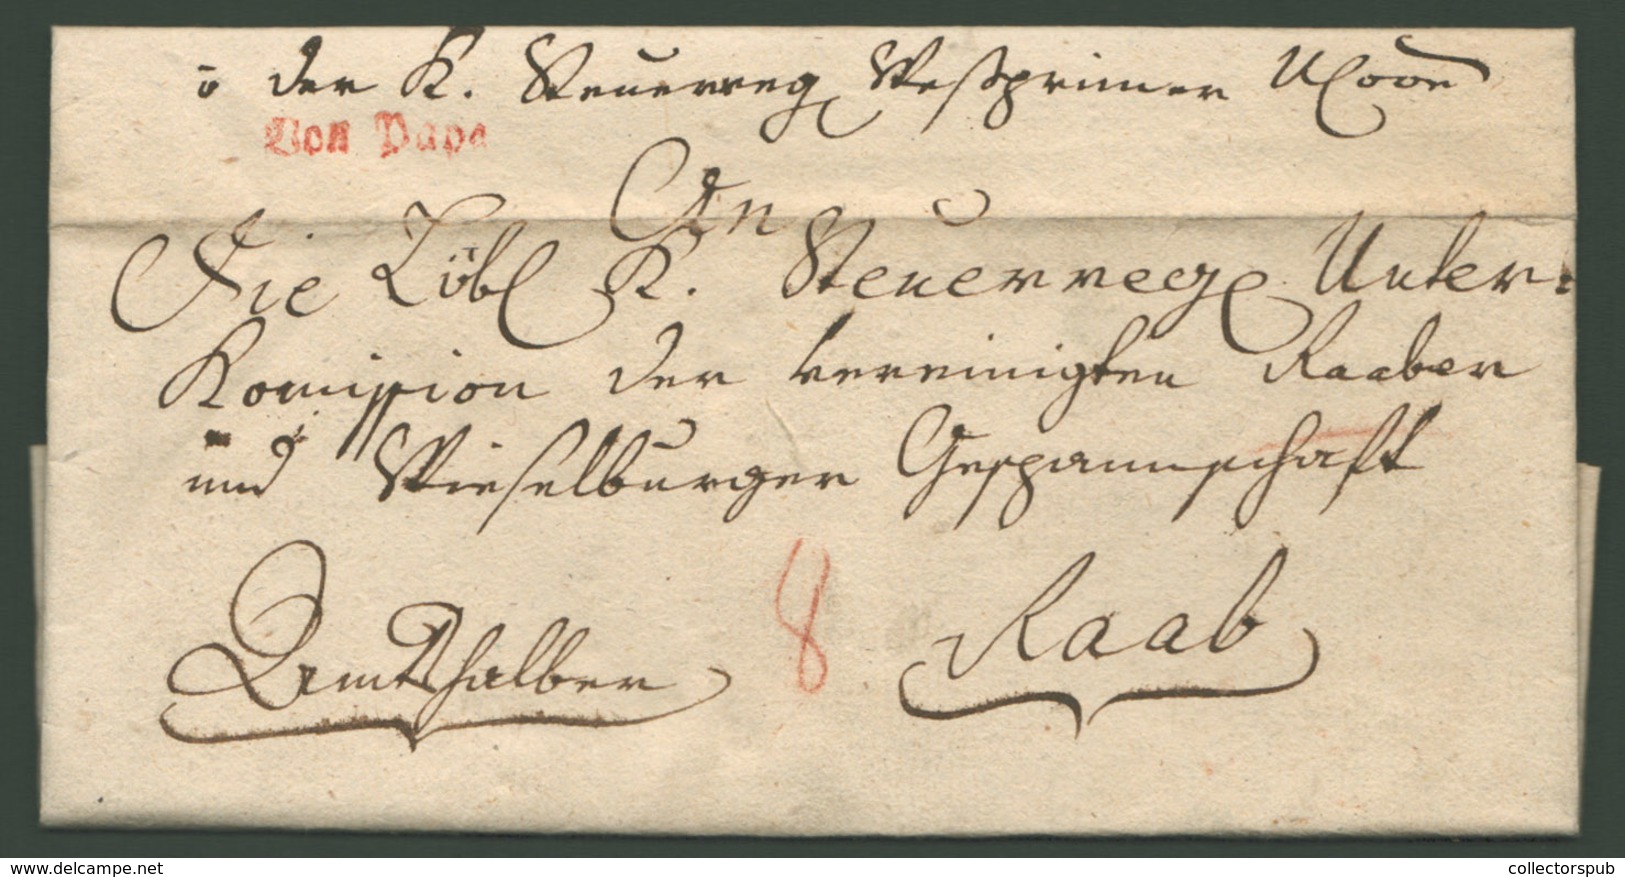 v der K. Steuerreg. Wesprimer
Von Papa
An
Die Löbl K. Steuerreg. Unter:
Komission der vereinigten Raaber
und Wieselburger Gespannschaft
Amtshalber 8 Raab
www.delcampe.net
collectorspub